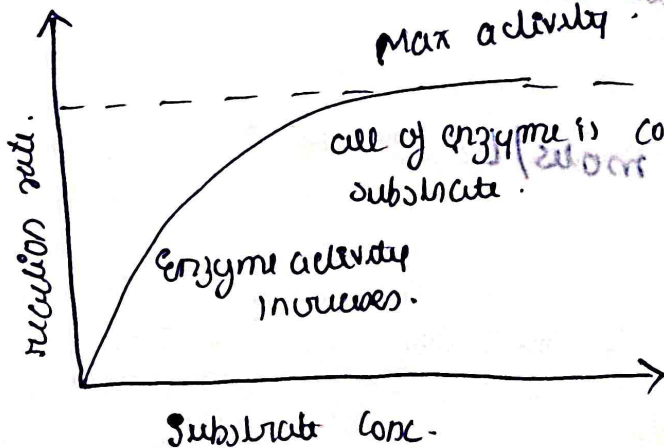 Max activity.
all of enzyme is co
substrate.
Enzyme activity
increases.
reaction rate.
Substrate conc.